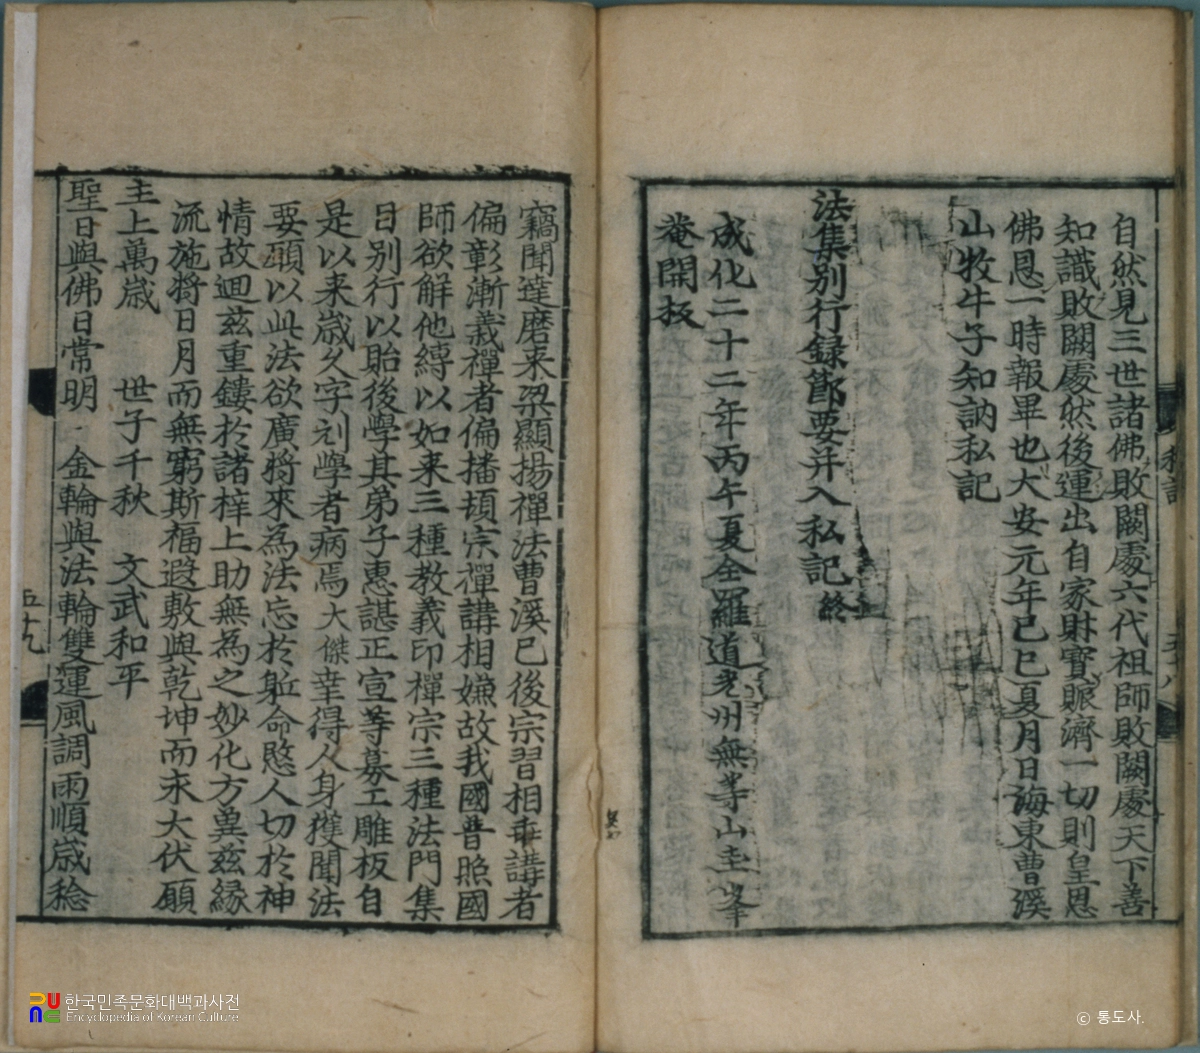 自然見三世諸佛敗闕處六代祖師敗闕處天下善
知識敗闕處然後運出自家財寶賑濟一切則皇恩
佛恩一時報畢也大安元年己巳夏月日海東曹溪
山牧牛子知訥私記
法集別行録節要并入私記 終
成化二十二年丙午夏全羅道光州無等山圭峯
菴開板
竊聞達磨来梁顯揚禪法曹溪已後宗習相乖講者
偏彰漸義禪者偏播頓宗禪講相嫌故我國普照國
師欲解他縛以如来三種教義印禪宗三種法門集
曰別行以貽後學其弟子惠諶正宣等募工雕板自
是以来歲久字刓學者病焉大傑幸得人身獲聞法
要願以此法欲廣將來為法忘於躯命愍人切於神
情故迴玆重鏤於諸梓上助無為之妙化方異玆緣
流施將日月而無窮斯福遐敷與乾坤而永大伏願
主上萬歲 世子千秋 文武和平
聖日與佛日常明 金輪與法輪雙運風調雨順歲稔
五十九
한국민족문화대백과사전
Encyclopedia of Korean Culture
ⓒ 통도사.